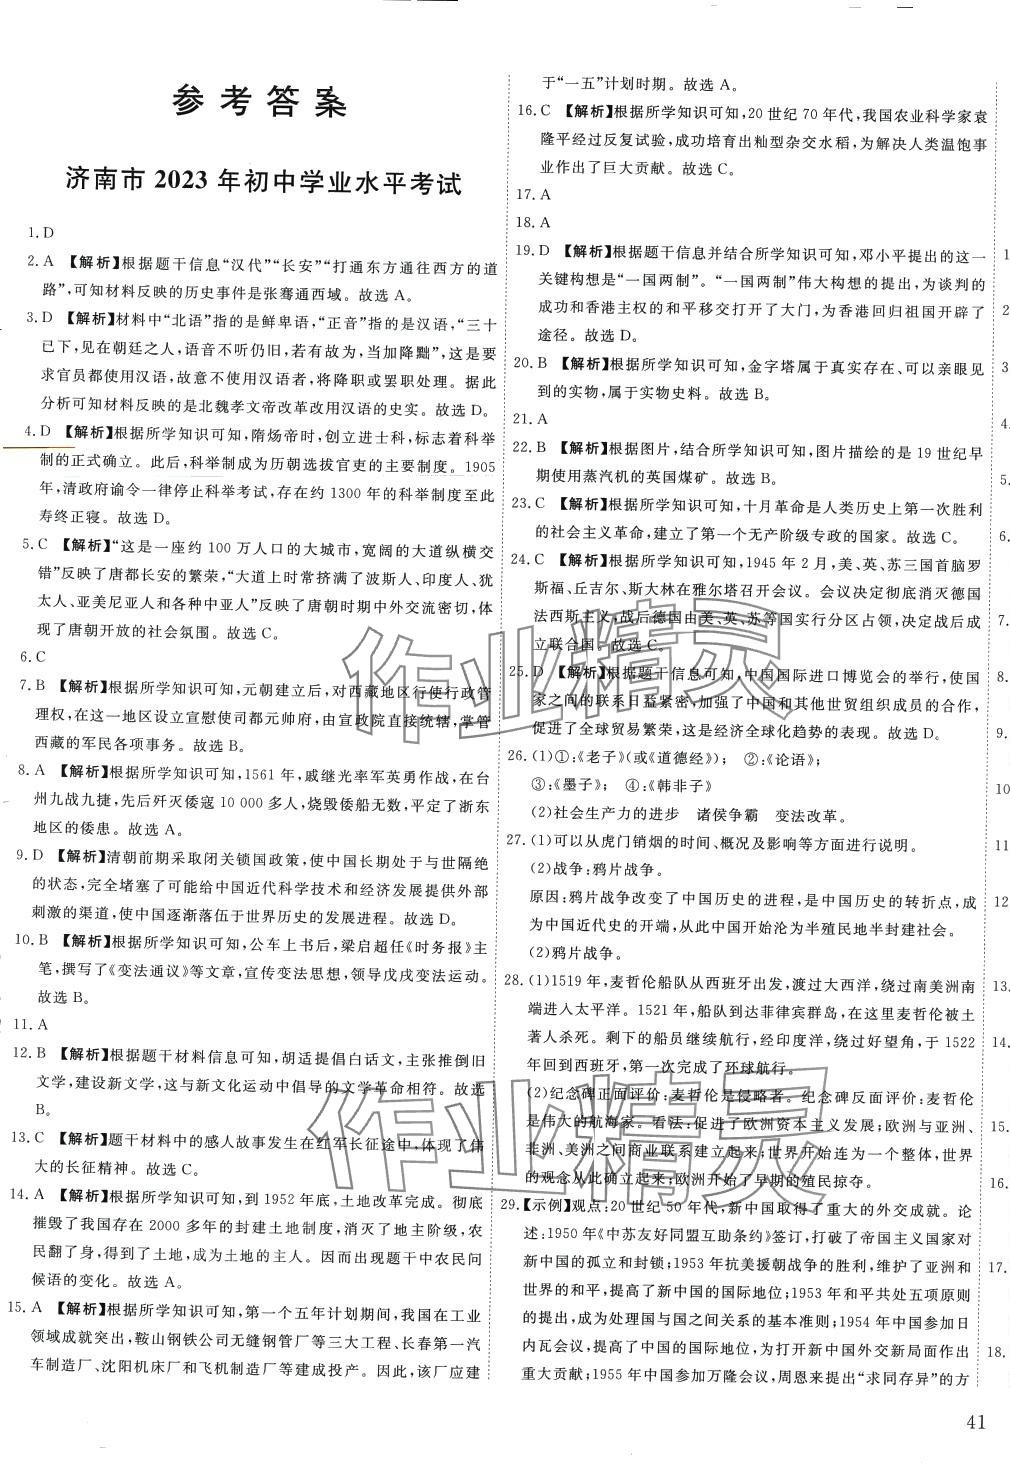 参考答案
济南市 2023 年初中学业水平考试
1. D
2. A 【解析】根据题干信息“汉代”“长安”“打通东方通往西方的道
路”,可知材料反映的历史事件是张骞通西域。故选 A。
3. D 【解析】材料中“北语”指的是鲜卑语,“正音”指的是汉语,“三十
已下,见在朝廷之人,语音不听仍旧,若有故为,当加降黜”,这是要
求官员都使用汉语,故意不使用汉语者,将降职或罢职处理。据此
分析可知材料反映的是北魏孝文帝改革改用汉语的史实。故选 D。
4. D 【解析】根据所学知识可知,隋炀帝时,创立进士科,标志着科举
制的正式确立。此后,科举制成为历朝选拔官吏的主要制度。1905
年,清政府谕令一律停止科举考试,存在约 1300 年的科举制度至此
寿终正寝。故选 D。
5. C 【解析】“这是一座约 100 万人口的大城市,宽阔的大道纵横交
错”反映了唐都长安的繁荣,“大道上时常挤满了波斯人、印度人、犹
太人、亚美尼亚人和各种中亚人”反映了唐朝时期中外交流密切,体
现了唐朝开放的社会氛围。故选 C。
6. C
7. B 【解析】根据所学知识可知,元朝建立后,对西藏地区行使行政管
理权,在这一地区设立宣慰使司都元帅府,由宣政院直接统辖,掌管
西藏的军民各项事务。故选 B。
8. A 【解析】根据所学知识可知,1561 年,戚继光率军英勇作战,在台
州九战九捷,先后歼灭倭寇 10 000 多人,烧毁倭船无数,平定了浙东
地区的倭患。故选 A。
9. D 【解析】清朝前期采取闭关锁国政策,使中国长期处于与世隔绝
的状态,完全堵塞了可能给中国近代科学技术和经济发展提供外部
刺激的渠道,使中国逐渐落伍于世界历史的发展进程。故选 D。
10. B 【解析】根据所学知识可知,公车上书后,梁启超任《时务报》主
笔,撰写了《变法通议》等文章,宣传变法思想,领导戊戌变法运动。
故选 B。
11. A
12. B 【解析】根据题干材料信息可知,胡适提倡白话文,主张推倒旧
文学,建设新文学,这与新文化运动中倡导的文学革命相符。故选
B。
13. C 【解析】题干材料中的感人故事发生在红军长征途中,体现了伟
大的长征精神。故选 C。
14. A 【解析】根据所学知识可知,到 1952 年底,土地改革完成。彻底
摧毁了我国存在 2000 多年的封建土地制度,消灭了地主阶级,农
民翻了身,得到了土地,成为土地的主人。因而出现题干中农民问
候语的变化。故选 A。
15. A 【解析】根据所学知识可知,第一个五年计划期间,我国在工业
领域成就突出,鞍山钢铁公司无缝钢管厂等三大工程、长春第一汽
车制造厂、沈阳机床厂和飞机制造厂等建成投产。因此,该厂应建
于“一五”计划时期。故选 A。
16. C 【解析】根据所学知识可知,20 世纪 70 年代,我国农业科学家袁
隆平经过反复试验,成功培育出籼型杂交水稻,为解决人类温饱事
业作出了巨大贡献。故选 C。
17. A
18. A
19. D 【解析】根据题干信息并结合所学知识可知,邓小平提出的这一
关键构想是“一国两制”。“一国两制”伟大构想的提出,为谈判的
成功和香港主权的和平移交打开了大门,为香港回归祖国开辟了
途径。故选 D。
20. B 【解析】根据所学知识可知,金字塔属于真实存在、可以亲眼见
到的实物,属于实物史料。故选 B。
21. A
22. B 【解析】根据图片,结合所学知识可知,图片描绘的是 19 世纪早
期使用蒸汽机的英国煤矿。故选 B。
23. C 【解析】根据所学知识可知,十月革命是人类历史上第一次胜利
的社会主义革命,建立了第一个无产阶级专政的国家。故选 C。
24. C 【解析】根据所学知识可知,1945 年 2 月,美、英、苏三国首脑罗
斯福、丘吉尔、斯大林在雅尔塔召开会议。会议决定彻底消灭德国
法西斯主义,战后德国由美、英、苏等国实行分区占领,决定战后成
立联合国。故选 C。
25. D 【解析】根据题干信息可知,中国国际进口博览会的举行,使国
家之间的联系日益紧密,加强了中国和其他世贸组织成员的合作,
促进了全球贸易繁荣,这是经济全球化趋势的表现。故选 D。
26. (1)①:《老子》(或《道德经》); ②:《论语》;
③:《墨子》; ④:《韩非子》
(2)社会生产力的进步 诸侯争霸 变法改革。
27. (1)可以从虎门销烟的时间、概况及影响等方面进行说明。
(2)战争:鸦片战争。
原因:鸦片战争改变了中国历史的进程,是中国历史的转折点,成
为中国近代史的开端,从此中国开始沦为半殖民地半封建社会。
(2)鸦片战争。
28. (1)1519 年,麦哲伦船队从西班牙出发,渡过大西洋,绕过南美洲南
端进入太平洋。1521 年,船队到达菲律宾群岛,在这里麦哲伦被土
著人杀死。剩下的船员继续航行,经印度洋,绕过好望角,于 1522
年回到西班牙,第一次完成了环球航行。
(2)纪念碑正面评价:麦哲伦是侵略者。纪念碑反面评价:麦哲伦
是伟大的航海家。看法:促进了欧洲资本主义发展;欧洲与亚洲、
非洲、美洲之间商业联系建立起来;世界开始连为一个整体,世界
的观念从此确立起来;欧洲开始了早期的殖民掠夺。
29. 【示例】观点:20 世纪 50 年代,新中国取得了重大的外交成就。论
述:1950 年《中苏友好同盟互助条约》签订,打破了帝国主义国家对
新中国的孤立和封锁;1953 年抗美援朝战争的胜利,维护了亚洲和
世界的和平,提高了新中国的国际地位;1953 年和平共处五项原则
的提出,成为处理国与国之间关系的基本准则;1954 年中国参加日
内瓦会议,提高了中国的国际地位,为打开新中国外交新局面作出
重大贡献;1955 年中国参加万隆会议,周恩来提出“求同存异”的方
1.
2.
3.
4.
5.
6.
7.
8.
9.
10
11
12
13.
14.
15.
16.
17.
18.
41
作业精灵
作业精灵